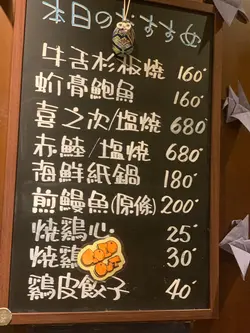 本日のおすすめ
牛舌杉板燒 160
蚵膏鮑魚 160
喜之次/塩燒 680
赤鯥/塩燒 680
海鮮紙鍋 180
煎鰻魚(原條) 200
燒鶏心 25
燒鶏 30
鶏皮餃子 40